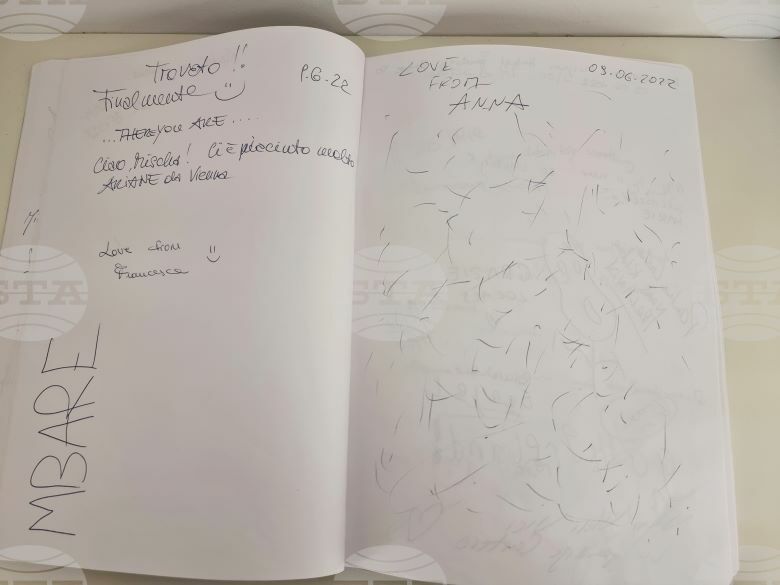 Trovato !!
Finalmente
9.6-22
... THERE you ARE ....
Ciao, Mischa! Ci È piaciuto molto
ARIANE da Vienna
Love from
Francesca
MBARE
LOVE
FROM
ANNA
09.06.2022
STA